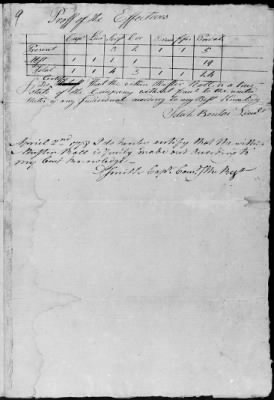 Proff of the Effectives
Capt Lieut Serjt Cor Drum Fifr Privat
Present 3 2 1 1 5
1 1 1 1 19
Total 1 1 4 3 1 1 24
that the within Muster Roll is a true
State of the Company without fraud to the united
States or any Individual according to my Best Knowledge
Lieut
April 2nd 1779 I do hereby certify that the within
Muster Roll is Justly made out according to
my best knowledge
Smith Capt Comt the Regt